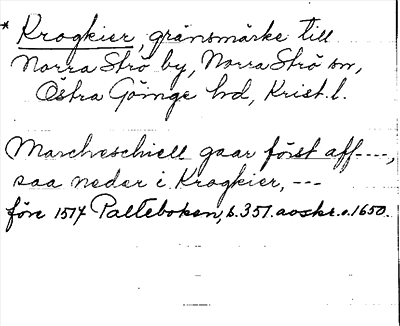 * Krogkier, gränsmärke till
Norra Strö by, Norra Strö sn,
Östra Göinge hd, Krist. l.
Marcheschiell gaar först aff----,
saa neder i Krogkier, ---
före 1517 Palteboken, s. 351. avskr. o. 1650.